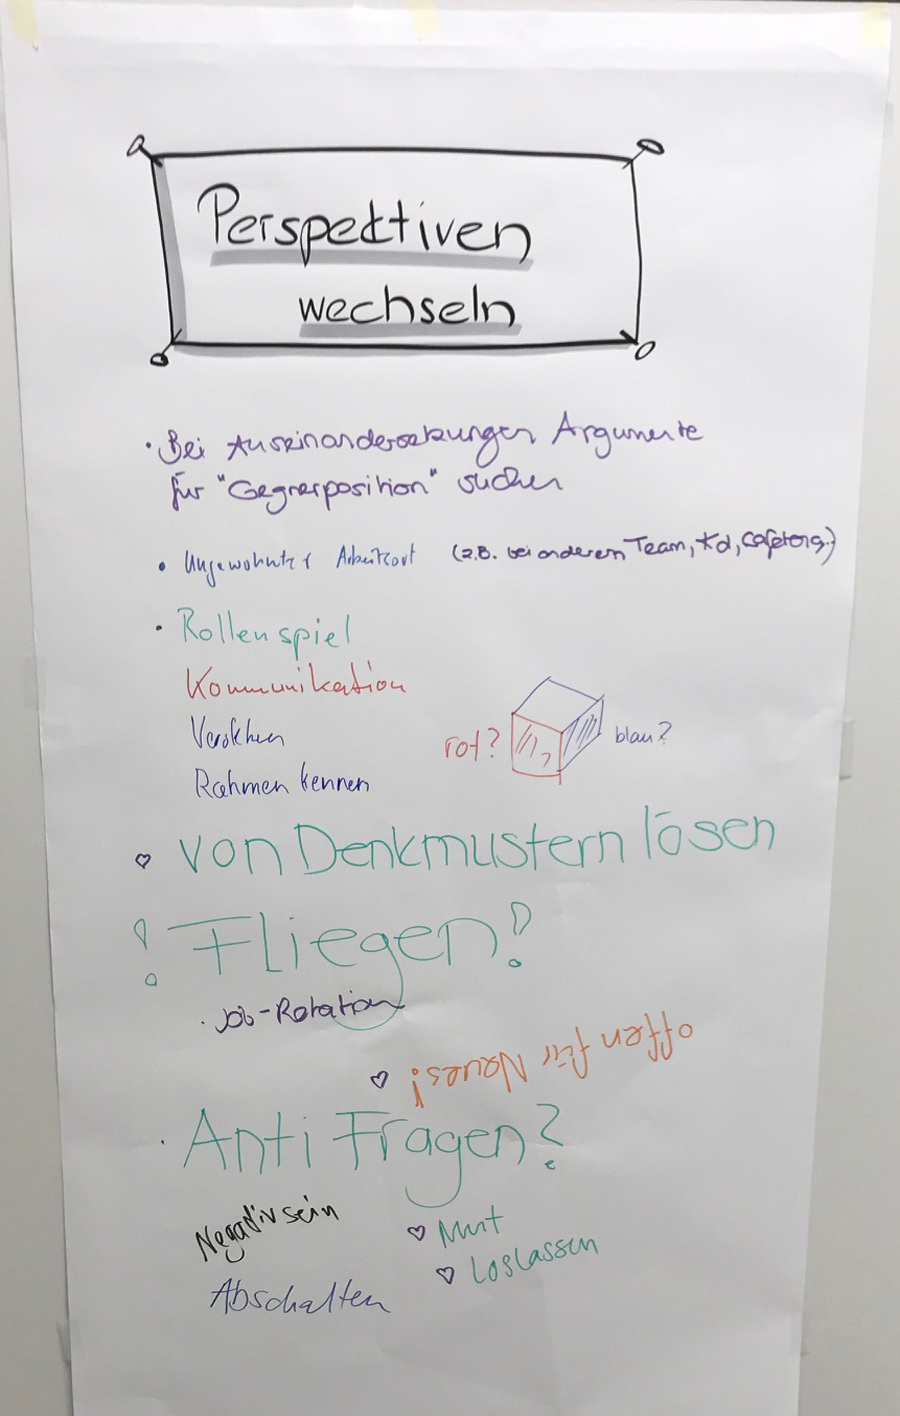 Perspektiven
wechseln
• Bei Auseinandersetzungen Argumente
für "Gegnerposition" suchen
• Ungewohnter Arbeitsort (z.B. bei anderem Team, Kd,
• Rollenspiel
Kommunikation
Verstehen
rot? blau?
Rahmen kennen
♡ von Denkmustern lösen
! Fliegen!
• Job-Rotation
♡ offen für Neues!
• Anti Fragen?
Negativ sein
♡ Mut
♡ Loslassen
Abschalten